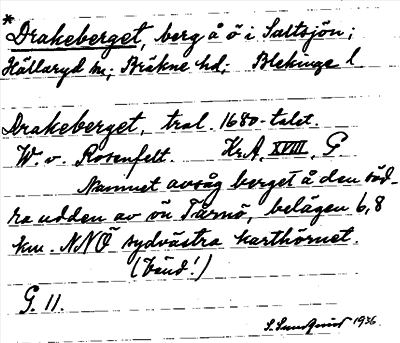 * Drakeberget, berg å ö i Saltsjön;
Hällaryd sn; Bräkne hd; Blekinge l.
Drakeberget, trol. 1680-talet.
W. v. Rosenfelt. KrA, XVIII, G.
Namnet avsåg berget å den söd-
ra udden av ön Tärnö, belägen 6,8
km. NNÖ sydvästra karthörnet.
(Vänd!)
G. 11.
S. Sundqvist 1936